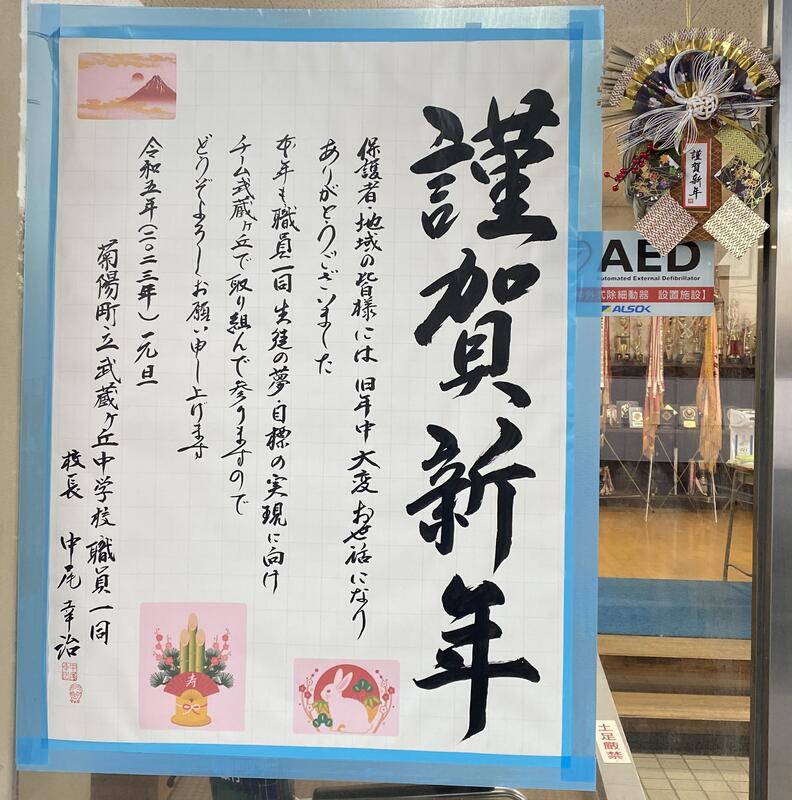 謹賀新年
保護者・地域の皆様には 旧年中 大変お世話になり
ありがとうございました
本年も職員一同 生徒の夢・目標の実現に向け
チーム武蔵ヶ丘で取り組んで参りますので
どうぞよろしくお願い申し上げます
令和五年(二〇二三年)元旦
菊陽町立武蔵ヶ丘中学校 職員一同
校長 中尾 幸治
寿
謹賀新年
AED
Automated External Defibrillator
式除細動器 設置施設】
ALSOK
土足厳禁